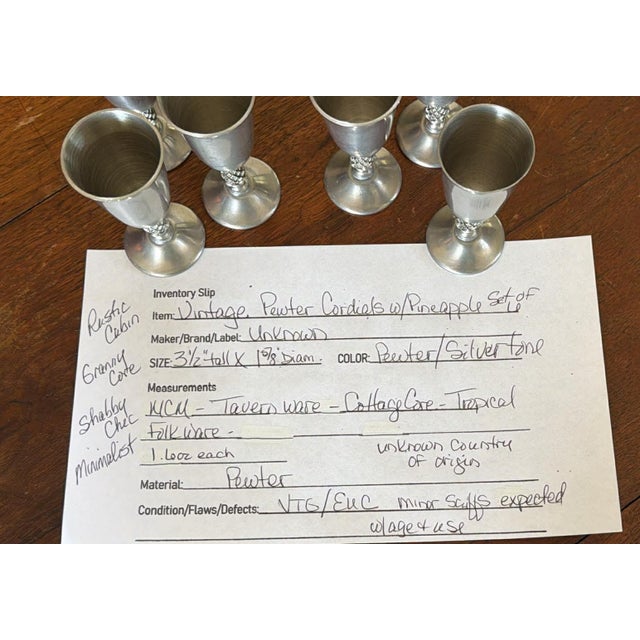 Inventory Slip
Item: Vintage Pewter Cordials w/Pineapple Set of 6
Maker/Brand/Label: Unknown
SIZE: 3½" tall X 1⅝" Diam. COLOR: Pewter/Silvertone
Measurements
MCM - Tavernware - CottageCore - Tropical
Folkware -
1.6oz each
unknown country
of origin
Material: Pewter
Condition/Flaws/Defects: VTG/EUC minor scuffs expected
w/age & use
Rustic
Cabin
Granny
Core
Shabby
Chic
Minimalist